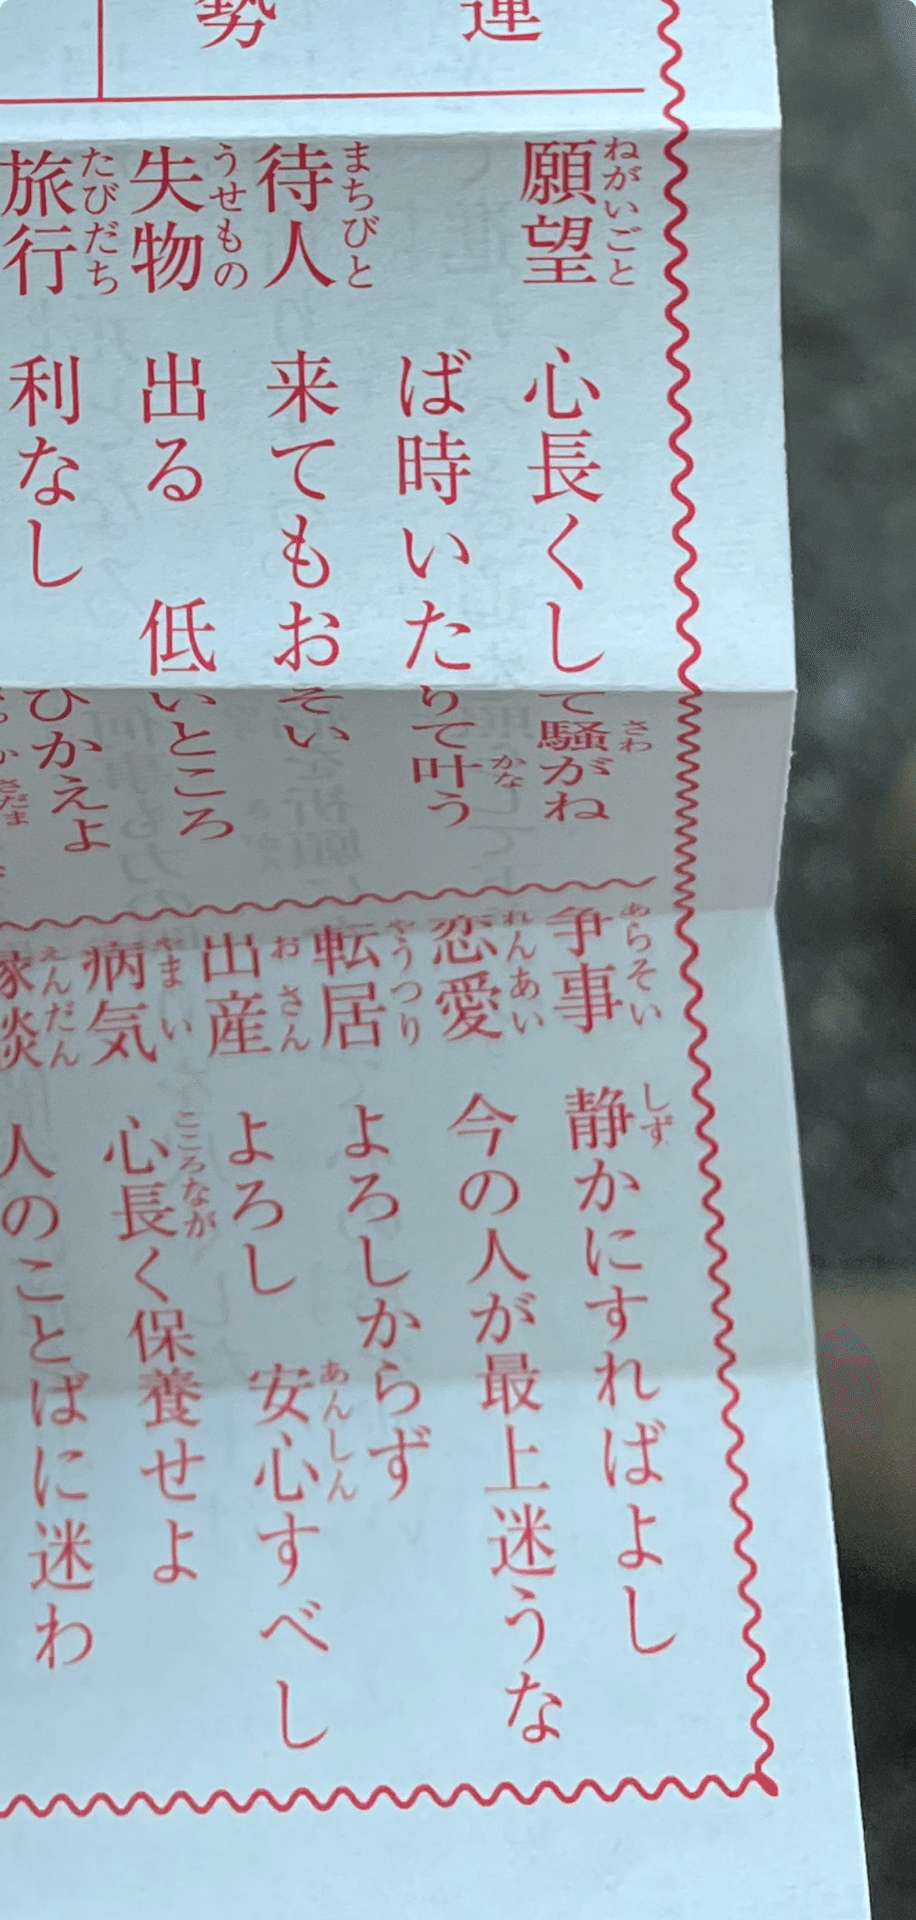 運勢
願望 心長くして騒がね
ば時いたりて叶う
待人 来てもおそい
失物 出る 低いところ
旅行 利なし ひかえよ
争事 静かにすればよし
恋愛 今の人が最上迷うな
転居 よろしからず
出産 よろし 安心すべし
病気 心長く保養せよ
縁談 人のことばに迷わ